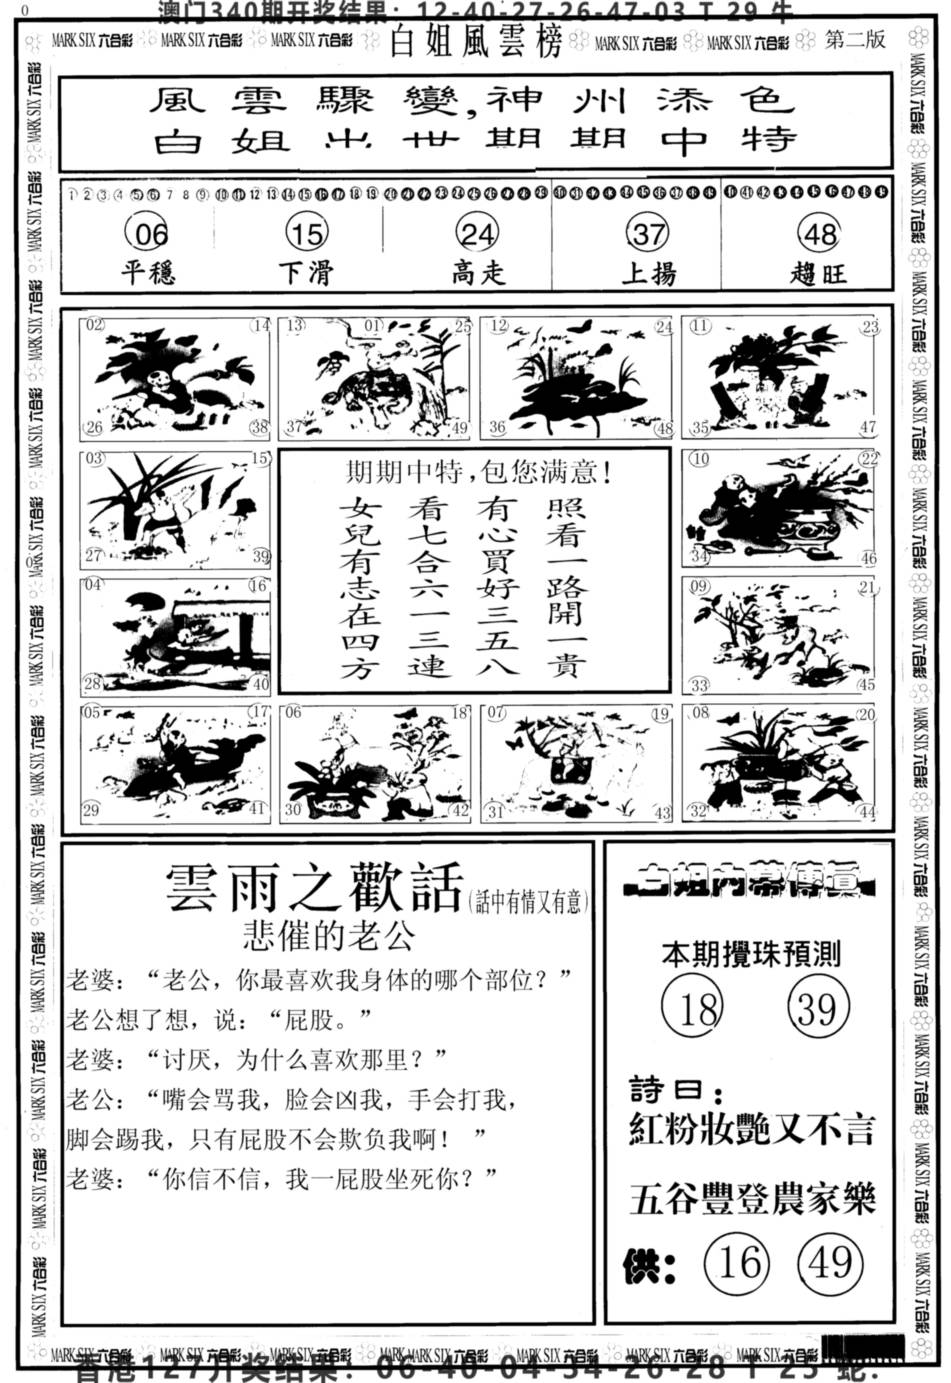 澳门340期开奖结果：12-40-27-26-47-03 T 29 牛
0
MARK SIX 六合彩 MARK SIX 六合彩 MARK SIX 六合彩 白姐風雲榜 MARK SIX 六合彩 MARK SIX 六合彩 第二版
風雲驟變,神州添色
白姐出世期期中特
1 2 3 4 5 6 7 8 9 10 11 12 13 14 15 16 17 18 19 20 21 22 23 24 25 26 27 28 29 30 31 32 33 34 35 36 37 38 39 40 41 42 43 44 45 46 47 48 49
06 15 24 37 48
平穩 下滑 高走 上揚 趨旺
02 14 13 01 25 12 24 11 23
26 38 37 49 36 48 35 47
03 15 10 22
27 39 34 46
04 16 09 21
28 40 33 45
05 17 06 18 07 19 08 20
29 41 30 42 31 43 32 44
期期中特,包您满意!
照看一路開一貴
有心買好三五八
看七合六一三連
女兒有志在四方
雲雨之歡話(話中有情又有意)
悲催的老公
老婆：“老公，你最喜欢我身体的哪个部位？”
老公想了想，说：“屁股。”
老婆：“讨厌，为什么喜欢那里？”
老公：“嘴会骂我，脸会凶我，手会打我，
脚会踢我，只有屁股不会欺负我啊！ ”
老婆：“你信不信，我一屁股坐死你？”
白姐内幕傳真
本期攪珠預測
18 39
詩曰：
紅粉妝艷又不言
五谷豐登農家樂
供： 16 49
MARK SIX 六合彩 MARK SIX 六合彩 MARK SIX 六合彩 MARK SIX 六合彩 MARK SIX 六合彩 MARK SIX 六合彩 MARK SIX 六合彩
香港127开奖结果：06-40-04-34-26-28 T 25 蛇.